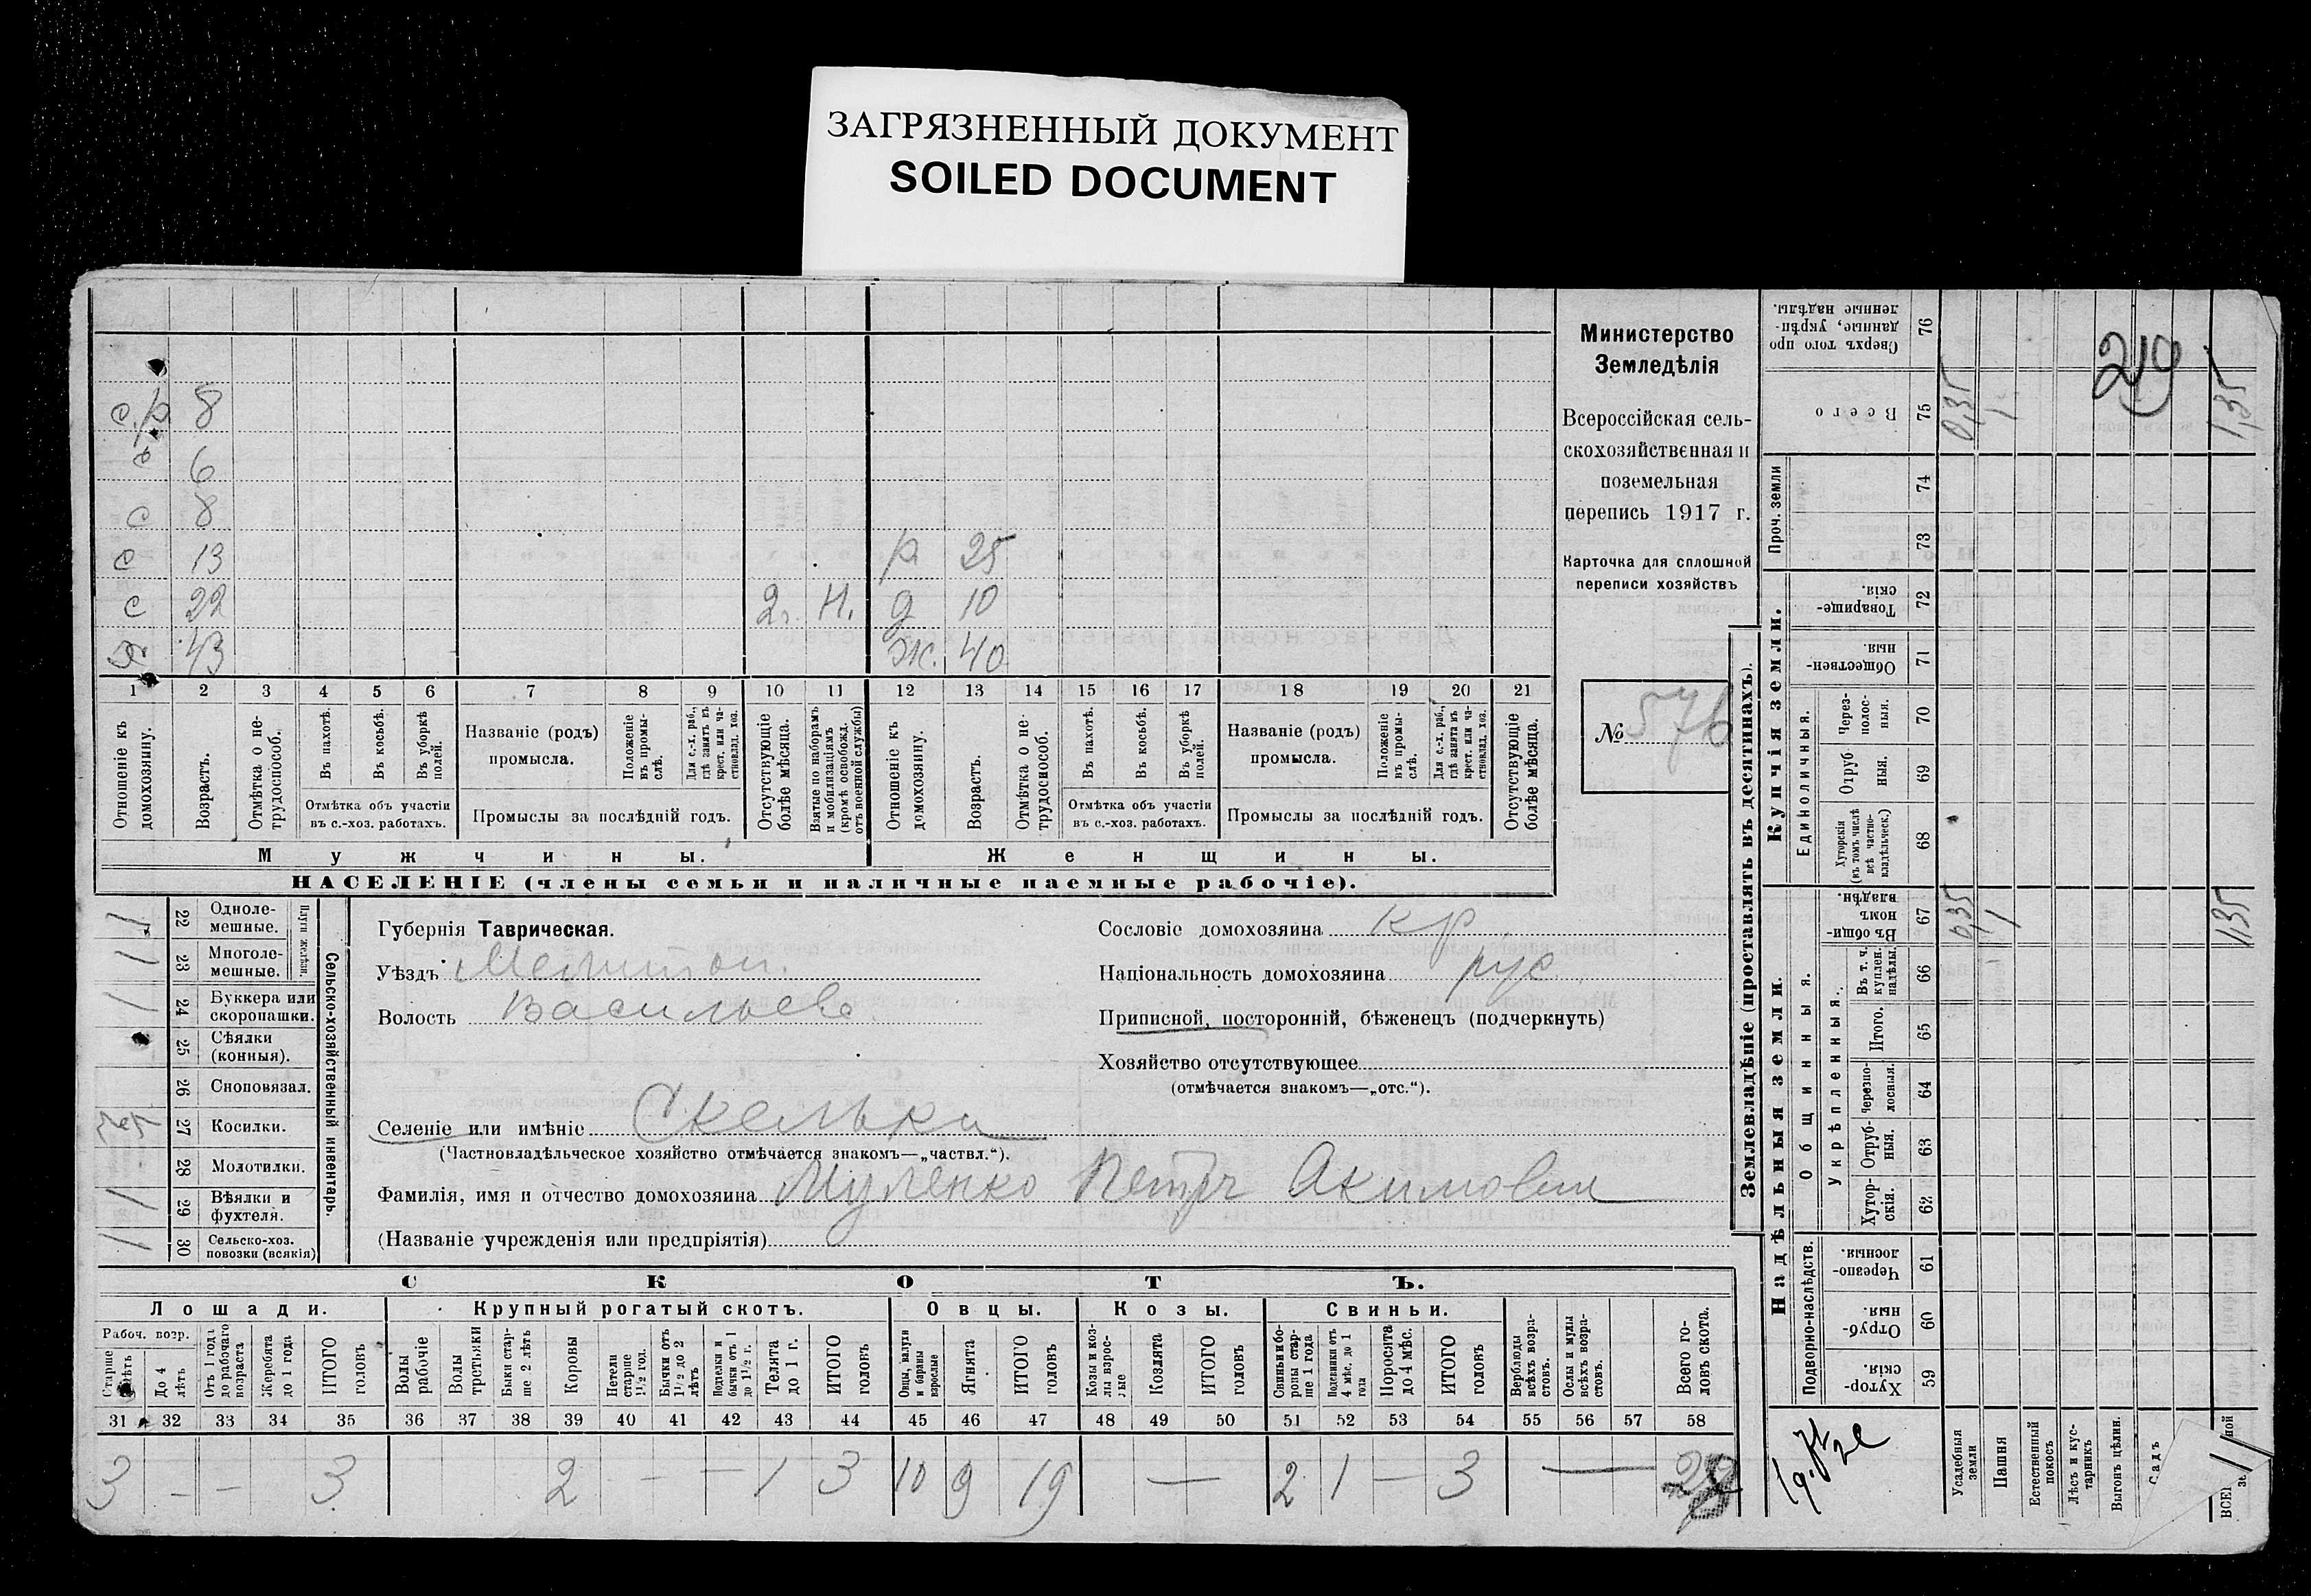 ЗАГРЯЗНЕННЫЙ ДОКУМЕНТ
SOILED DOCUMENT
с.р 8
с 6
с 8
с 13 р 25
с 22 2г. Н. д 10
Х 43 ж. 40
1 2 3 4 5 6 7 8 9 10 11 12 13 14 15 16 17 18 19 20 21
Отношеніе къ домохозяину.
Возрастъ.
Отмѣтка о не-трудоспособ.
Въ пахотѣ.
Въ косьбѣ.
Въ уборкѣ полей.
Отмѣтка объ участіи
въ с.-хоз. работахъ.
Названіе (родъ)
промысла.
Положеніе въ промы-слѣ.
Для с.-х. раб., гдѣ занятъ въ крест. или ча-стновлад. хоз.
Промыслы за послѣдній годъ.
Отсутствующіе болѣе мѣсяца.
Взятые по наборамъ и мобилизаціямъ (кромѣ освобожд. отъ военной службы)
Отношеніе къ домохозяину.
Возрастъ.
Отмѣтка о не-трудоспособ.
Въ пахотѣ.
Въ косьбѣ.
Въ уборкѣ полей.
Отмѣтка объ участіи
въ с.-хоз. работахъ.
Названіе (родъ)
промысла.
Положеніе въ промы-слѣ.
Для с.-х. раб., гдѣ занята въ крест. или ча-стновлад. хоз.
Промыслы за послѣдній годъ.
Отсутствующіе болѣе мѣсяца.
Мужчины. Женщины.
НАСЕЛЕНІЕ (члены семьи и наличные наемные рабочіе).
Министерство
Земледѣлія
Всероссійская сель-
скохозяйственная и
поземельная
перепись 1917 г.
Карточка для сплошной
переписи хозяйствъ
№ 576
Сельско-хозяйственный инвентарь.
Плуги желѣзн.
22 Одноле-мешные. 1
23 Многоле-мешные. 1
24 Буккера или скоропашки. 1
25 Сѣялки (конныя).
26 Сноповязал.
27 Косилки.
28 Молотилки. -
29 Вѣялки и фухтеля. 1
30 Сельско-хоз. повозки (всякія) 1
Губернія Таврическая.
Уѣздъ Мелитоп.
Волость Васильевс.
Селеніе или имѣніе Скельки
(Частновладѣльческое хозяйство отмѣчается знакомъ—„частвл.“).
Фамилія, имя и отчество домохозяина Муленко Петръ Акимович
(Названіе учрежденія или предпріятія)
Сословіе домохозяина кр.
Національность домохозяина рус.
Приписной, посторонній, бѣженецъ (подчеркнуть)
Хозяйство отсутствующее
(отмѣчается знакомъ—„отс.“).
СКОТЪ.
Лошади. Крупный рогатый скотъ. Овцы. Козы. Свиньи.
Рабоч. возр.
Старше лѣтъ
До 4 лѣтъ
Отъ 1 года до рабочаго возраста
Жеребята до 1 года
ИТОГО головъ
Волы рабочіе
Волы третьяки
Быки стар-ше 2 лѣтъ
Коровы
Нетели старше 1½ год.
Бычки отъ 1½ до 2 лѣтъ
Подтелки и бычки отъ 1 до 1½ г.
Телята до 1 г.
ИТОГО головъ
Овцы, валухи и бараны взрослые
Ягнята
ИТОГО головъ
Козы и коз-лы взрос-лые
Козлята
ИТОГО головъ
Свиньи и бо-ровы стар-ше 1 года
Подсвинки отъ 4 мѣс. до 1 года
Поросята до 4 мѣс.
ИТОГО головъ
Верблюды всѣхъ возра-стовъ.
Ослы и мулы всѣхъ возра-стовъ.
Всего го-ловъ скота.
31 32 33 34 35 36 37 38 39 40 41 42 43 44 45 46 47 48 49 50 51 52 53 54 55 56 57 58
3 - - 3 2 - - - 1 3 10 9 19 — 2 1 — 3 — 28
Землевладѣніе (проставлять въ десятинахъ).
Купчія земли.
Надѣльныя земли.
Сверхъ того про-данные, укрѣп-ленные надѣлы. 76
Всего 75 0,35 1 1,35
Проч. земли 74 73
Товарище-скія. 72
Обществен-ныя. 71
Единоличныя.
Через-полос-ныя. 70
Отруб-ныя. 69
Хуторскія (въ томъ числѣ всѣ частно-владѣльческ.) 68
Общинныя.
Въ общи-номъ владѣн. 67 0,35 1 1,35
Укрѣпленныя.
Въ т. ч. куплен. надѣлы 66
Итого. 65
Черезпо-лосныя. 64
Отруб-ныя. 63
Хутор-скія. 62
Подворно-наслѣдств.
Черезпо-лосныя. 61
Отруб-ныя. 60
Хутор-скія. 59
Усадебныя земли
Пашня
Естественный покосъ
Лѣсъ и кус-тарникъ
Выгонъ цѣлин.
Садъ
219